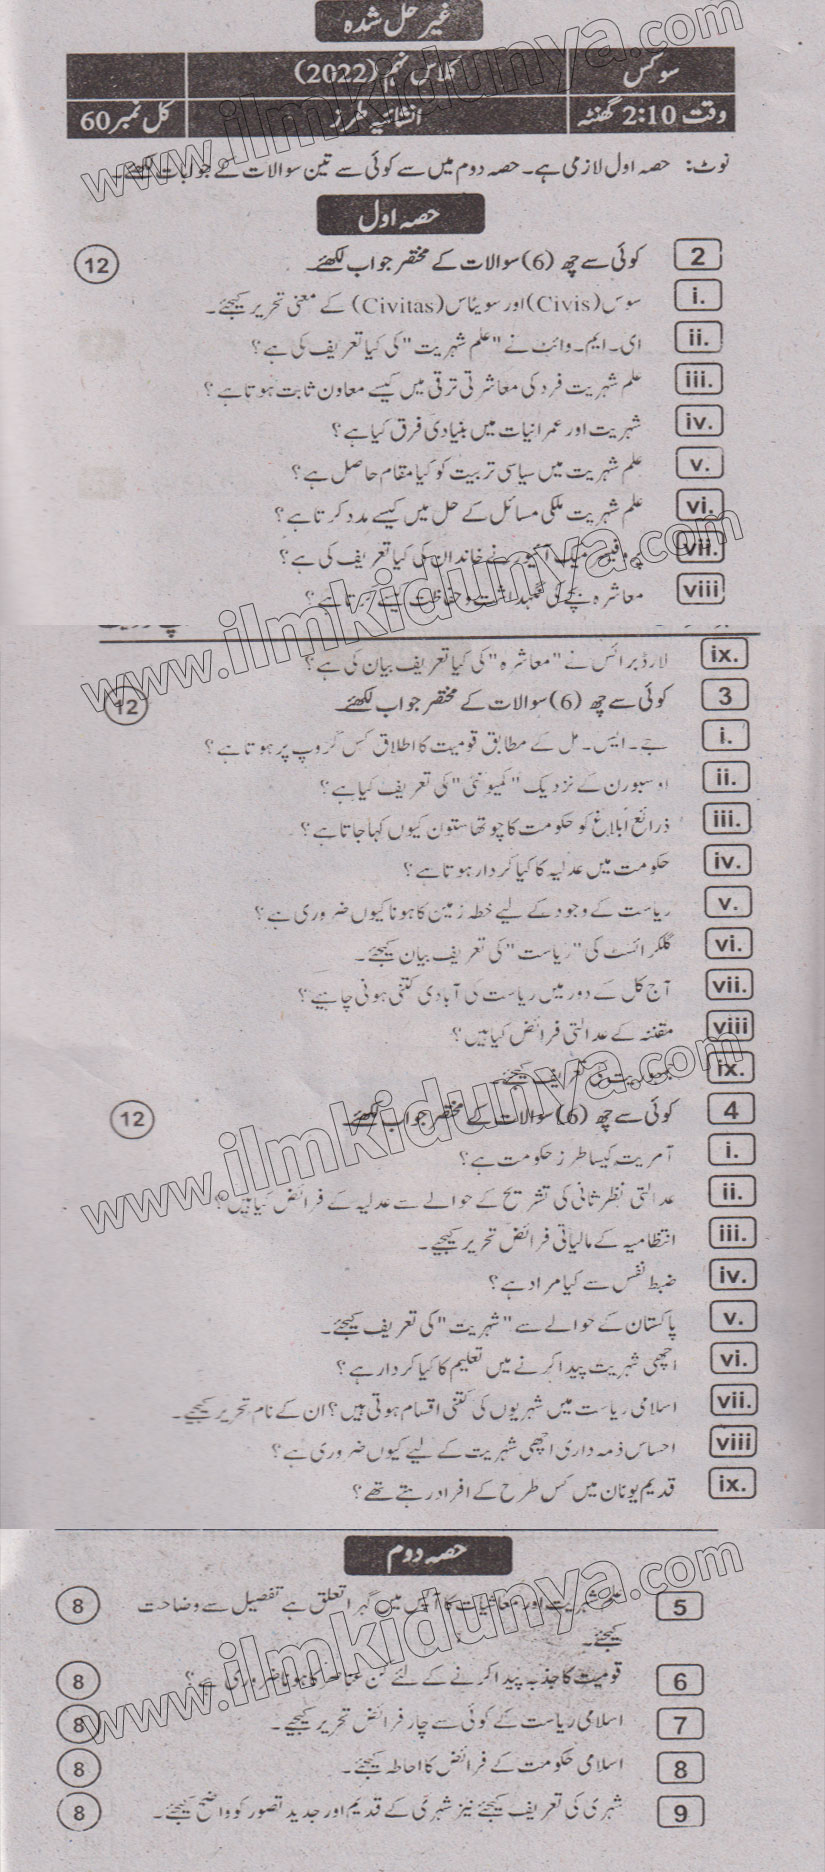 غیر حل شدہ
سوکس کلاس نہم (2022)
وقت 2:10 گھنٹہ انشائیہ طرز کل نمبر 60
نوٹ: حصہ اول لازمی ہے۔ حصہ دوم میں سے کوئی سے تین سوالات کے جوابات لکھئے۔
حصہ اول
2 کوئی سے چھ (6) سوالات کے مختصر جواب لکھئے۔ 12
i. سوس (Civis) اور سویٹاس (Civitas) کے معنی تحریر کیجئے۔
ii. ای۔ ایم۔ وائٹ نے "علم شہریت" کی کیا تعریف کی ہے؟
iii. علم شہریت فرد کی معاشرتی ترقی میں کیسے معاون ثابت ہوتا ہے؟
iv. شہریت اور عمرانیات میں بنیادی فرق کیا ہے؟
v. علم شہریت میں سیاسی تربیت کو کیا مقام حاصل ہے؟
vi. علم شہریت ملکی مسائل کے حل میں کیسے مدد کرتا ہے؟
vii. پروفیسر میک آئیور نے خاندان کی کیا تعریف کی ہے؟
viii معاشرہ بچے کی نگہداشت و حفاظت کیسے کرتا ہے؟
ix. لارڈ برائس نے "معاشرہ" کی کیا تعریف بیان کی ہے؟
3 کوئی سے چھ (6) سوالات کے مختصر جواب لکھئے۔ 12
i. جے۔ ایس۔ مل کے مطابق قومیت کا اطلاق کس گروپ پر ہوتا ہے؟
ii. اوسبورن کے نزدیک "کمیونٹی" کی تعریف کیا ہے؟
iii. ذرائع ابلاغ کو حکومت کا چوتھا ستون کیوں کہا جاتا ہے؟
iv. حکومت میں عدلیہ کا کیا کردار ہوتا ہے؟
v. ریاست کے وجود کے لیے خطہ زمین کا ہونا کیوں ضروری ہے؟
vi. گلکرائسٹ کی "ریاست" کی تعریف بیان کیجئے۔
vii. آج کل کے دور میں ریاست کی آبادی کتنی ہونی چاہیے؟
viii مقننہ کے عدالتی فرائض کیا ہیں؟
ix. جمہوریت کی تعریف کیجئے۔
4 کوئی سے چھ (6) سوالات کے مختصر جواب لکھئے۔ 12
i. آمریت کیسا طرز حکومت ہے؟
ii. عدالتی نظر ثانی کی تشریح کے حوالے سے عدلیہ کے فرائض کیا ہیں؟
iii. انتظامیہ کے مالیاتی فرائض تحریر کیجیے۔
iv. ضبط نفس سے کیا مراد ہے؟
v. پاکستان کے حوالے سے "شہریت" کی تعریف کیجئے۔
vi. اچھی شہریت پیدا کرنے میں تعلیم کا کیا کردار ہے؟
vii. اسلامی ریاست میں شہریوں کی کتنی اقسام ہوتی ہیں؟ ان کے نام تحریر کیجیے۔
viii احساس ذمہ داری اچھی شہریت کے لیے کیوں ضروری ہے؟
ix. قدیم یونان میں کس طرح کے افراد رہتے تھے؟
حصہ دوم
5 علم شہریت اور معاشیات کا آپس میں گہرا تعلق ہے تفصیل سے وضاحت 8
کیجئے۔
6 قومیت کا جذبہ پیدا کرنے کے لئے کن عناصر کا ہونا ضروری ہے؟ 8
7 اسلامی ریاست کے کوئی سے چار فرائض تحریر کیجیے۔ 8
8 اسلامی حکومت کے فرائض کا احاطہ کیجئے۔ 8
9 شہری کی تعریف کیجئے نیز شہری کے قدیم اور جدید تصور کو واضح کیجئے۔ 8
www.ilmkidunya.com
www.ilmkidunya.com
www.ilmkidunya.com
www.ilmkidunya.com